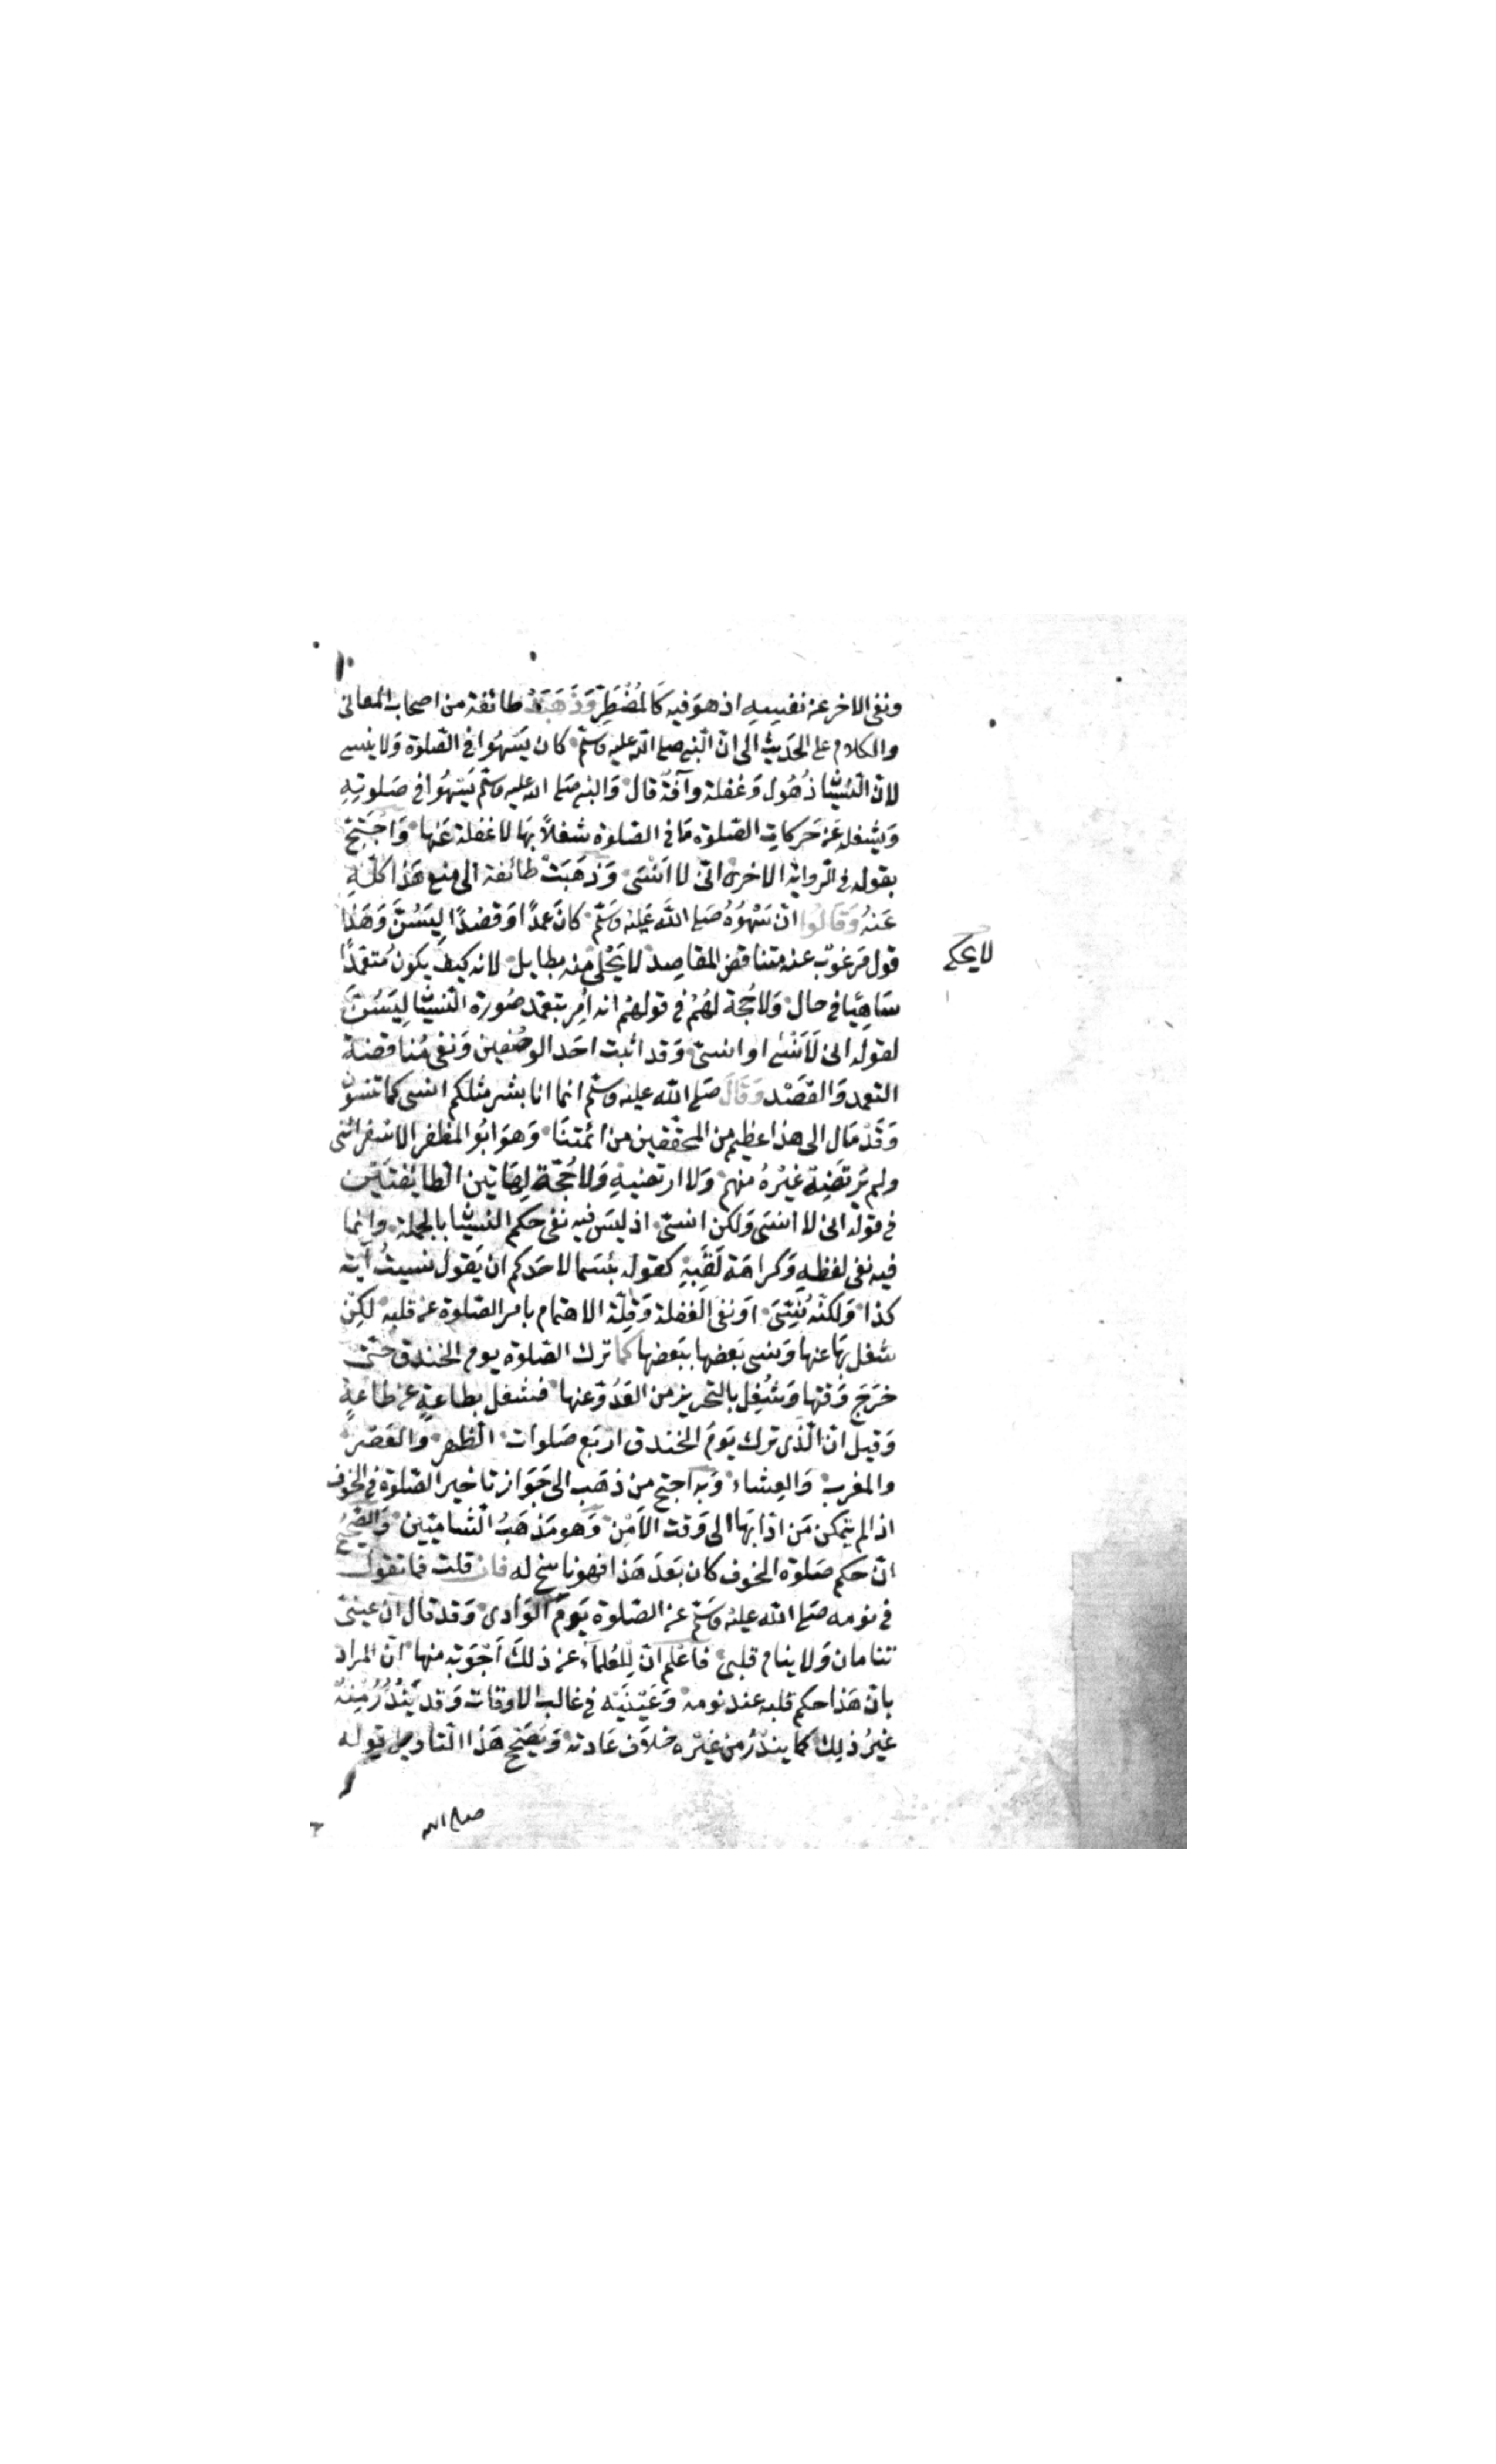 ونفى الاخر عن نفسه اذ هو فيه كالمُضْطَرِّ وَذَهَبَتْ طائفة من اصحاب المعانى
والكلام على الحَدِيث الى انّ النّبى صلى الله عليه وسلّم كان يَسْهُوا فى الصّلوة وَلا ينسى
لانّ النّسْيٰا ذُهُول وَغفلة وآفَة قال وَالنبى صَلى الله عليه وسلّم يَسْهُوا فى صَلوتِهِ
وَيشغله عَنْ حَركاتِ الصّلوة مَا فى الصّلوة شغلاً بهَا لا غفلة عَنها وَاحْتَجّ
بقوله فى الرواية الاخرى انّى لا اَنْسَى وَذهَبَتْ طائفة الى منع هَذا كلّه
عَنهُ وَقَالُوا انّ سَهْوَهُ صَلى اللّٰه عَليْه وَسَلّم كانَ عَمدًا وَقصْدًا لِيَسُنَّ وَهَذا
قول مَرغوبٌ عنه متناقض المقاصِد لا يَحْلى منه بطايل لانه كيفَ يكون مُتعَمّدًا
سَاهِيًا فى حال وَلا حُجة لهُمْ فى قولهمْ انه اُمِر بتعَمّد صُورة النّسْيٰا لِيَسُنَّ
لقوله انى لَاَنْسٰى او انسىّ وَقد اثبت احَد الوصْفين وَنفى مُناقضة
التعمد وَالقصْد وَقَالَ صَلى الله عليه وسَلّم انما انا بشر مثلكم انسى كما تنسوْن
وَقَدْ مَال الى هذا عظيم من المحَققين من ائمتنَا وَهوَ ابُو المظفر الاسْفرائنى
ولم يَرتَضِهِ غيْرهُ منهم وَلا ارتضيهِ وَلا حُجّة لِهَاتين الطايفتَيْن
فى قوله انى لا انسَى وَلكن انسىّ اذ ليسَ فيه نفى حكم النسْيٰا بالجملة وَانما
فيه نفى لفظهِ وَكراهَة لَقَبِهِ كقوله بئسَما لاحَدكم ان يَقول نسيتُ آية
كذا وَلكنّه نُسِّىَ اوْ نفى الغفلة وَقِلّة الاهتمام بامر الصّلوة عن قلبه لكِن
شغل بهَا عنها وَنسى بَعضها ببَعضها كمَا ترك الصّلوة يوم الخندق حَتّى
خَرَجَ وَقتها وَشُغِل بالتحرّز من العَدُوّ عنها فشغل بطاعةٍ عن طاعَةٍ
وَقيل انّ الّذى ترك يَومَ الخندق ارْبَع صَلوات الظهر وَالعَصْر
والمغرب وَالعِشاء وَبه احتج من ذهَب الى جَوَاز تاخير الصّلوة فى الخوف
اذا لم يتمكن مَن اَدَائهَا الى وَقت الاَمْن وَهو مَذهَبُ الشاميّين وَالصَّحِيحُ
انّ حكم صَلوة الخوف كان بَعدَ هَذا فهو ناسخ له فان قلت فما تقول
فى نومه صَلى اللّٰه عليه وَسَلّم عن الصّلوة يَومَ الوَادى وَقد قال انّ عينىّ
تنامان وَلا ينام قلبى فاعْلم انّ للِعُلماَء عن ذلكَ اَجْوبَة منها انّ المراد
بانّ هَذا حكم قلبه عند نومه وَعَيْنَيْه فى غالب الاوقات وَقد يَنْدُرُ مِنْهُ
غيْرُ ذلِك كما يندُرُ من غيْره خلاَف عَادته وَيُصَحّح هَذا التاويل قوله
صلى الله
لا يحكى